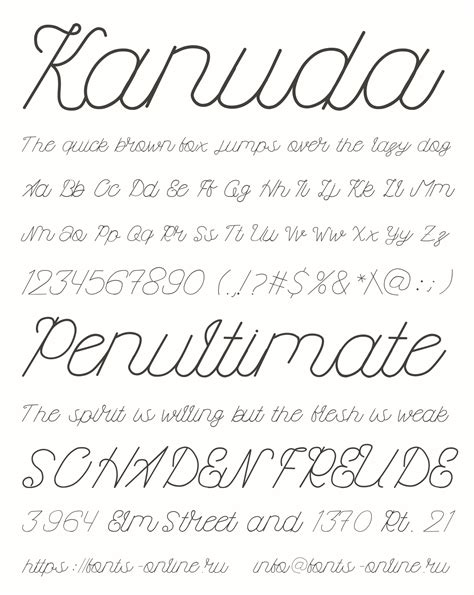 Kanuda
The quick brown fox jumps over the lazy dog
Aa Bb Cc Dd Ee Ff Gg Hh Ii Jj Kk Ll Mm
Nn Oo Pp Qq Rr Ss Tt Uu Vv Ww Xx Yy Zz
1234567890 (.,!?#$%&*\@:;)
Penultimate
The spirit is willing but the flesh is weak
SCHADENFREUDE
3964 Elm Street and 1370 Rt. 21
https://fonts-online.ru info@fonts-online.ru